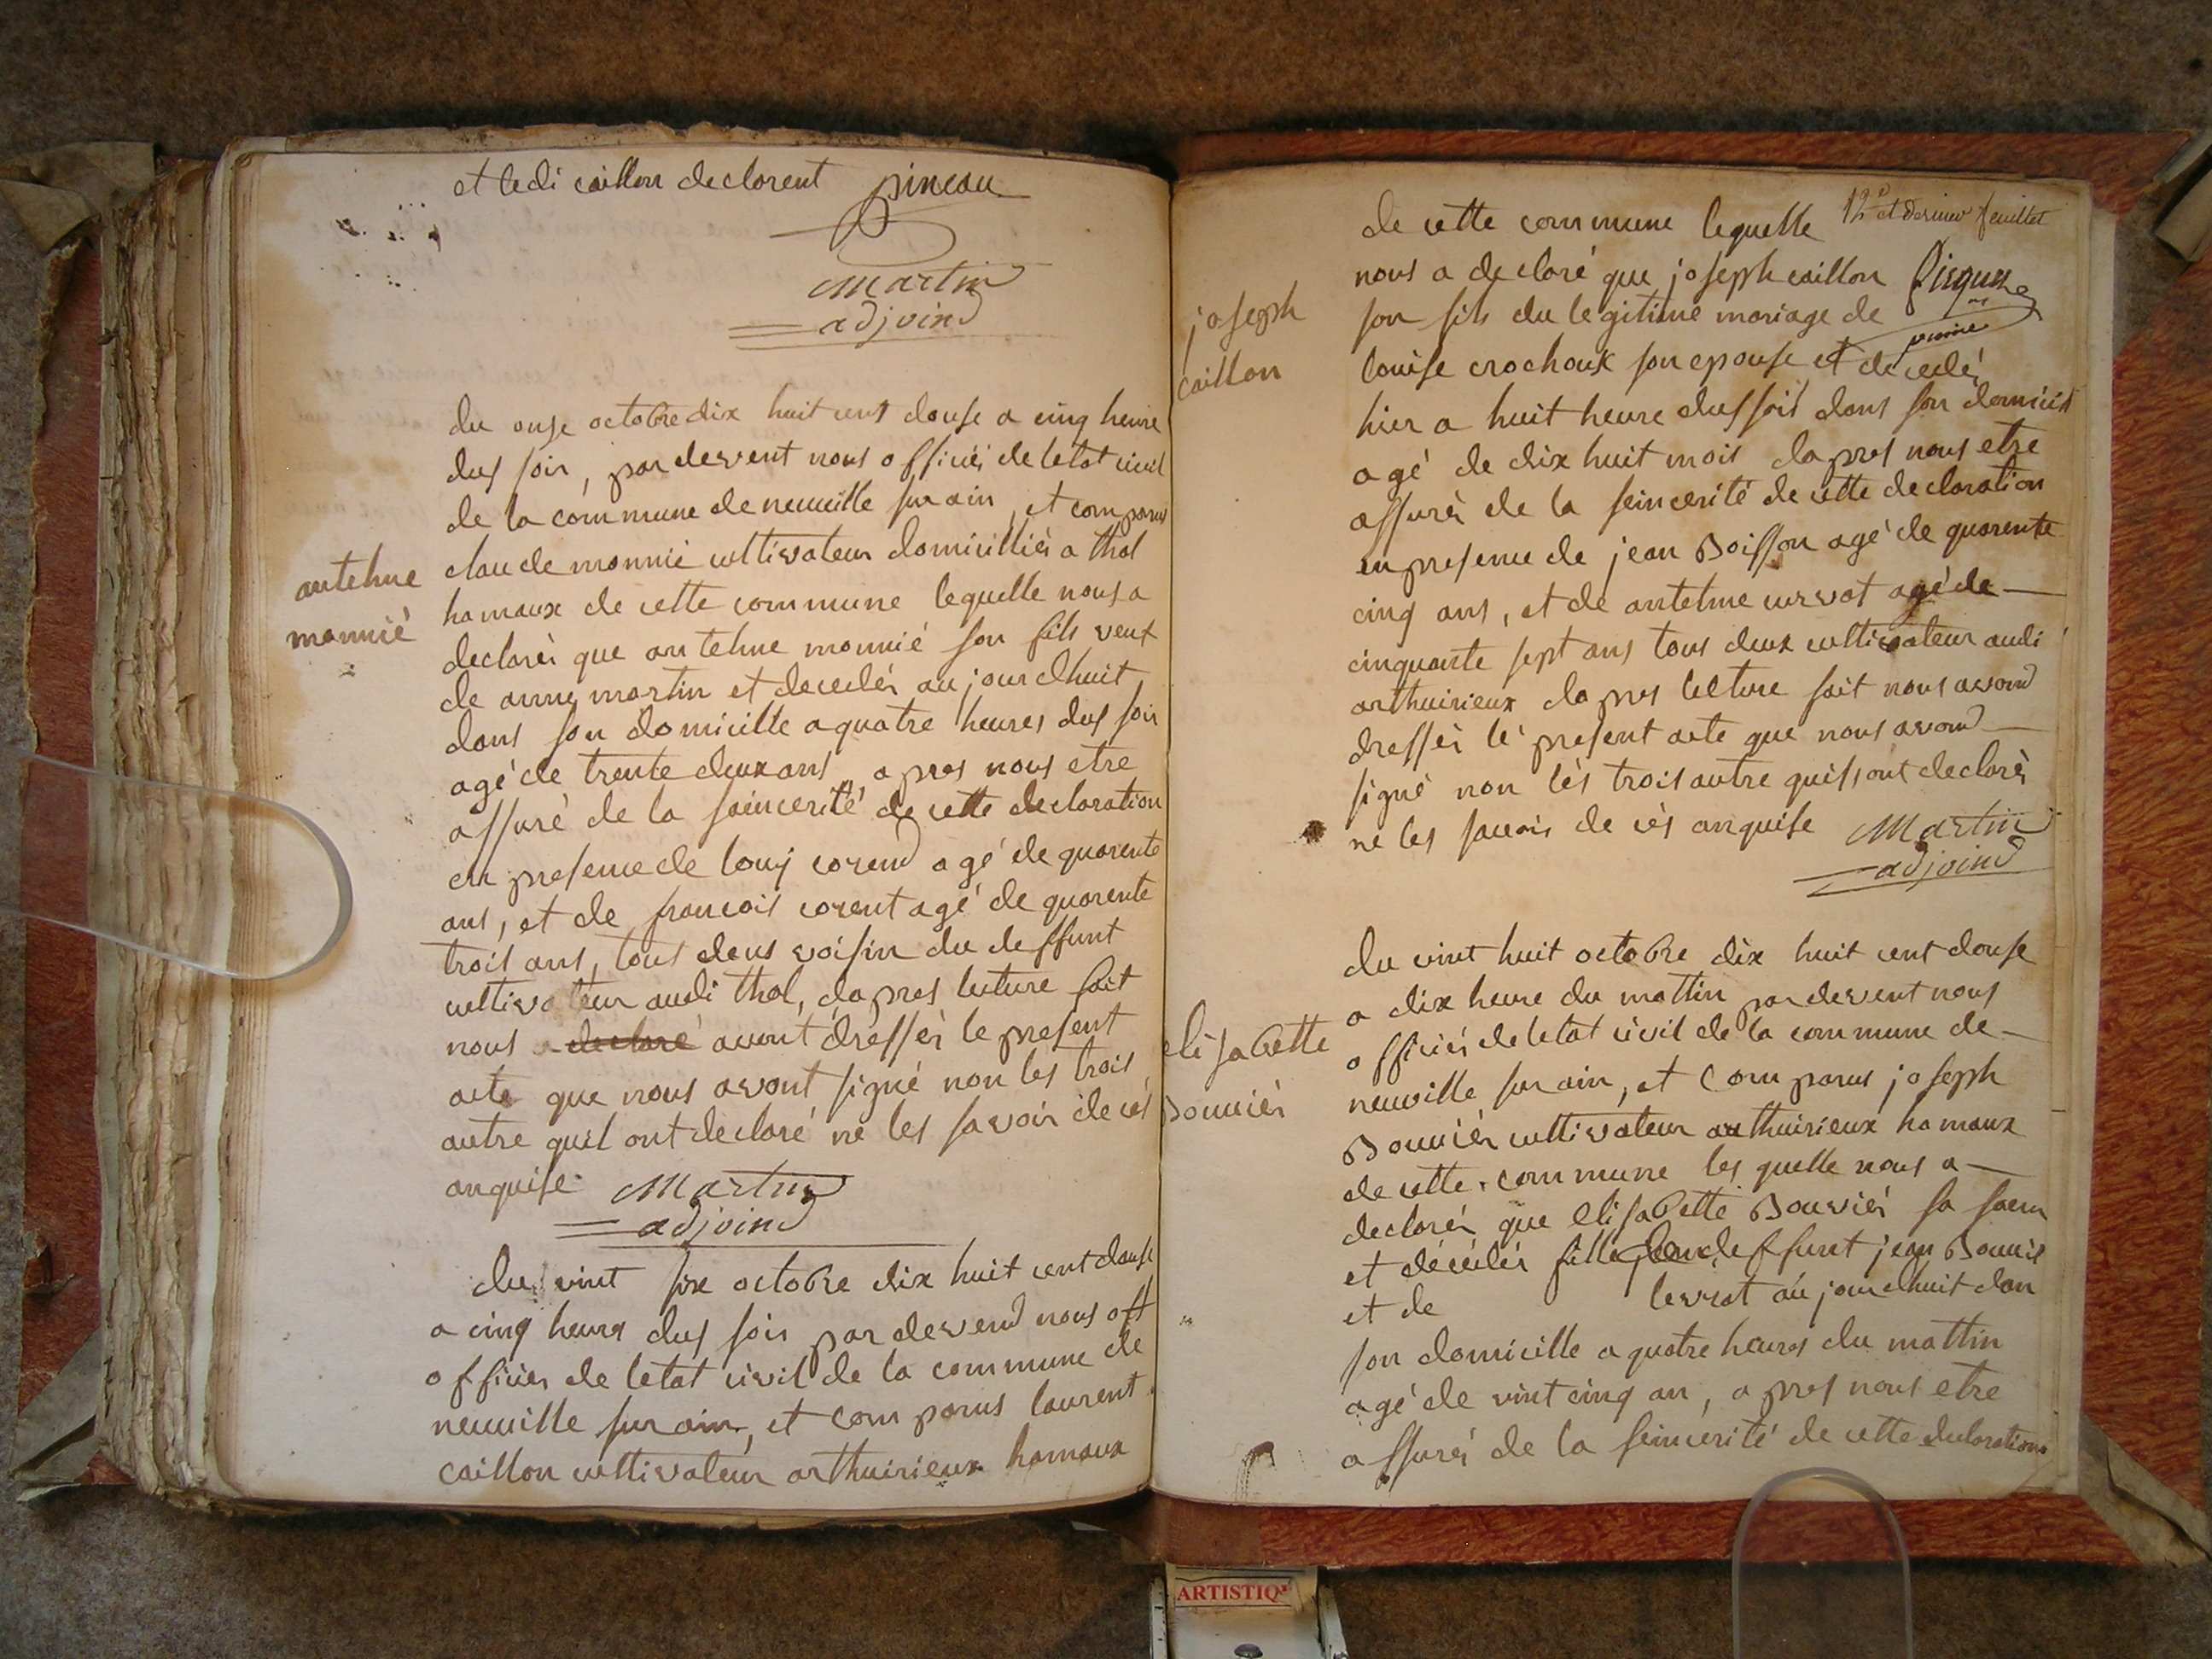 et ledi caillon declorent pineau
Martin
adjoind
du onse octobre dix huit cent douse a cinq heure
dus soir, par devent nous officiér de letat civil
de la commune de neuville sur ain, et comparus
antelme
monnié
claude monnié cultivateur domicilliér a thol
hamaux de cette commune lequelle nous a
declarér que antelme monnié son fils veuf
de anne martin et decedér aujourdhuit
dans son domicille a quatre heures dus soir
agé de trente deux ans, apres nous etre
assuré de la saincerité de cette declaration
en presence de louis corend agé de quarente
ans, et de francois corent agé de quarente
trois ans, tous deus voisin du deffunt
cultivateur audi thol, dapres lecture fait
nous a declaré avont dressér le present
acte que nous avont signé non les trois
autre quil ont declaré ne les savoir de cés
anquise Martin
adjoind
du vint six octobre dix huit cent douse
a cinq heures dus soir par devend nous off
officiér de letat civil de la commune de
neuville sur ain, et comparus laurent
caillon cultivateur arthuirieux hamaux
12e et dernier feuillet
de cette commune lequelle
nous a declaré que joseph caillon
joseph
caillon
son fils du legitime mariage de
louise crochoux son epouse et decedér
hier a huit heure dus soir dans son domicill
agé de dix huit mois dapres nous etre
assurér de la seincerité de cette declaration
en presence de jean Boisson agé de quarente
cinq ans, et de antelme curvat agé de
cinquante sept ans tous deux cultivateur audi
arthuirieux dapres lecture fait nous avond
dressér le present acte que nous avond
signé non lés trois autre quils ont declarér
ne les savoir de cés anquise Martin
adjoind
du vint huit octobre dix huit cent douse
a dix heure du mattin par devent nous
elisabette
Bouviér
officiér de letat civil de la commune de
neuville sur ain, et comparus joseph
Bouviér cultivateur authuirieux hamaux
de cette commune les quelle nous a
declarér que elisabette Bouviér sa saeur
et décédér fille deffunt jean Bouviér
et de levrat aujourdhuit dan
son domicille a quatre heures du mattin
agé de vint cinq an, apres nous etre
assurér de la seincérité de cette declaration
ARTISTIQ